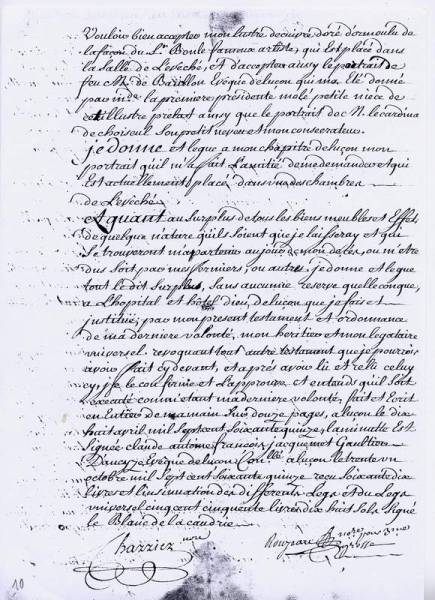 Vouloir bien accepter mon lustre de cuivre doré dormoulu de
la façon du Sr. Boule fameux artiste, qui Est placé dans
la Salle de Leveché, et d'accepter aussy le portrait de
feu Mr. de Barillon Evêque de luçon qui ma Eté donné
par mde. la premiere presidente molé petite niece de
illustre prelat aussy que le portrait de le cardinal
de choiseul Son petit neveu et mon consecrateur.
je donne et legue a mon chapitre de luçon mon
portrait quil m'a fait L'amitié de me demander et qui
Est actuellement placé dans des chambres
de Leveché
Et quant au Surplus de tous les biens meubles et Effets
de quelque nature quils soient que je laisseray et qui
Se trouveront m'apartenir au jour de mon deces, ou m'etre
dus Soit par mes fermiers, ou autres, je donne et legue
tout le dit Surplus, Sans aucune reserve quelleconque,
a L'hopital et hôtel Dieu, de luçon que je fais et
jnstitue, par mon present testament et ordonnance
de ma derniere volonté, mon heritier et mon legataire
universel revoquant tout autre testament que je pourrois
avoir fait cy devant, et après avoir lû et relû celuy
cy, je le confirme et L'approuve et entends quil Soit
executé comme étant ma derniere volonté, fait et Ecrit
en Entier de ma main Sur douze pages, a luçon le dix
huit avril mil Sept cent Soixante quinze, la minutte Est
Signée claude antoine françois jacquemet Gaultier
D'ancyze Evêque de luçon Con.llé a luçon le trente un
octobre mil Sept cent Soixante quinze reçu Soixante dix
livres et linsinuation des differents Legs et du Legs
universel cinq cent cinquante livres dix huit Sols Signé
le Blanc de la caudrie
10